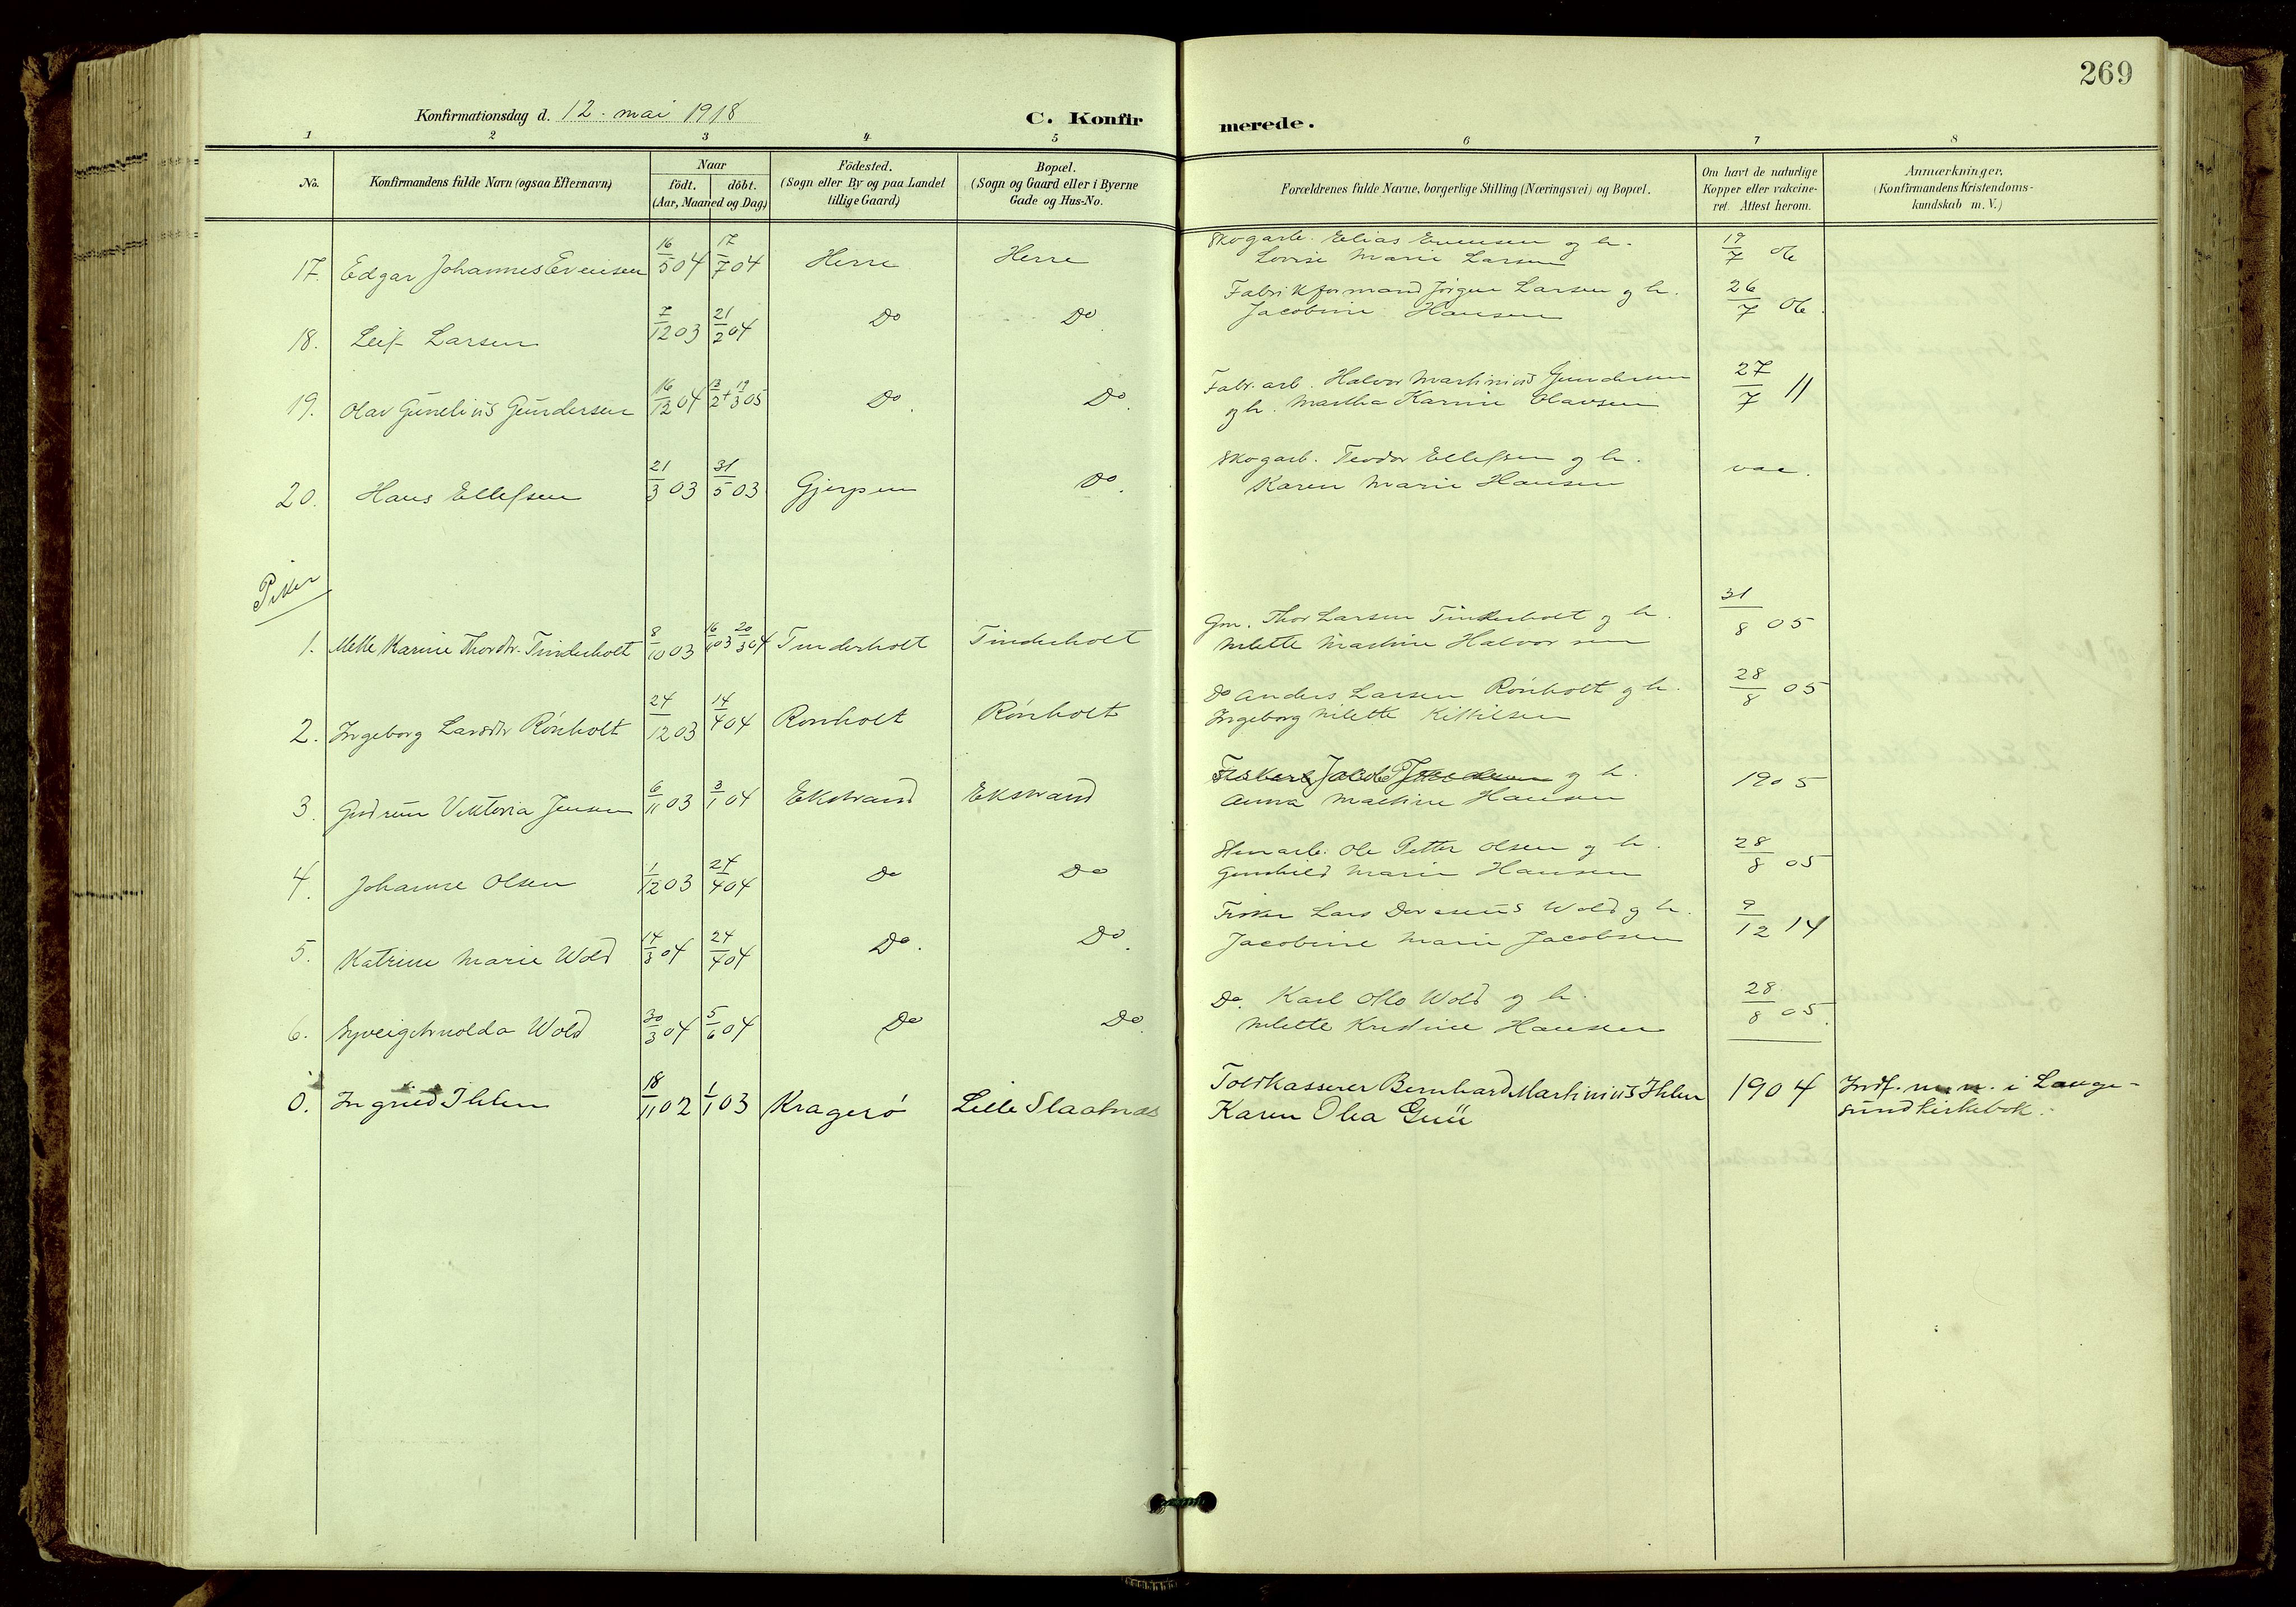 269
Konfirmationsdag d. 12. mai 1918
C. Konfirmerede.
1 2 3 4 5 6 7 8
No.
Konfirmandens fulde Navn (ogsaa Efternavn)
Naar
födt. döbt.
(Aar, Maaned og Dag)
Födested.
(Sogn eller By og paa Landet
tillige Gaard)
Bopæl.
(Sogn og Gaard eller i Byerne
Gade og Hus-No.
Forældrenes fulde Navne, borgerlige Stilling (Næringsvei) og Bopæl.
Om havt de naturlige
Kopper eller vakcine-
ret. Attest herom.
Anmærkninger.
(Konfirmandens Kristendoms-
kundskab m. V.)
17. Edgar Johannes Evensen 16/5 04 17/7 04 Herre Herre Skogarb. Elias Evensen og h. 19/7 06
Lovise Marie Larsen
18. Leif Larsen 7/12 03 21/2 04 Do Do Fabrikformand Jörgen Larsen og h. 26/7 06.
Jacobine Hansen
19. Olav Gunelius Gundersen 16/12 04 13/2 + 19/3 05 Do. Do. Fabr. arb. Halvor Martinius Gundersen 27/7 11
og h. Martha Karine Olavsen
20. Hans Ellefsen 21/3 03 31/5 03 Gjerpen Do. Skogarb. Teodor Ellefsen og h. vac.
Karen Marie Hansen
Piker
1. Mette Karine Thordtr. Tinderholt 8/10 03 20/3 04 Tinderholt Tinderholt Gm. Thor Larsen Tinderholt og h. 31/8 05
Milette Martine Halvorsen
2. Ingeborg Larsdtr Rönholt 24/12 03 14/4 04 Rönholt Rönholt Do Anders Larsen Rönholt og h. 28/8 05
Ingeborg Milette Kittilsen
3. Gudrun Viktoria Jensen 6/11 03 3/1 04 Ekstrand Ekstrand Fisker Jacob og h. 1905
Anna Martine Hansen
4. Johanne Olsen 1/12 03 24/4 04 Do Do Stenarb. Ole Petter Olsen og h. 28/8 05
Gunhild Marie Hansen
5. Katrine Marie Wold 14/3 04 24/4 04 Do. Do. Fisker Lars Wold og h. 9/12 14
Jacobine Marie Jacobsen
6. Wold 30/3 04 5/6 04 Do Do. Do. Karl Otto Wold og h. 28/8 05.
Milette Kristine Hansen
0. Ingrid Ihlen 18/11 02 1/1 03 Kragerö Lille Slaatnæs Toldkasserer Bernhard Martinius Ihlen 1904 Indf. m. n. i Lange-
Karen Olea sund kirkebok.